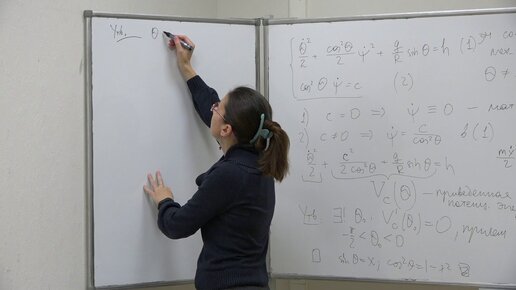 Утв. Θ
θ̇²/2 + cos²θ/2 ψ̇² + g/R sinθ = h (1)
cos²θ ψ̇ = c (2) θ ≠
1) c = 0 ⟹ ψ̇ ≡ 0 – мат
2) c ≠ 0 ⟹ ψ̇ = c/cos²θ в (1)
θ̇²/2 + c²/2cos²θ + g/R sinθ = h
V_c(θ) – приведённая
потенц. эне
Утв. ∃! θ₀ : V'_c(θ₀) = 0, причем
-π/2 < θ₀ < 0
□ sinθ = x, cos²θ = 1 - x²